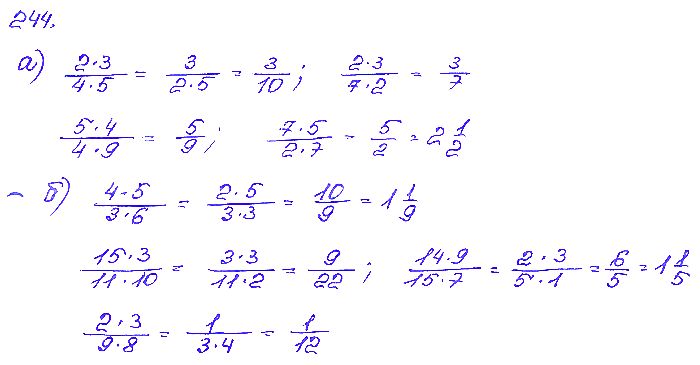 244.
а) 2·3/4·5 = 3/2·5 = 3/10; 2·3/7·2 = 3/7
5·4/4·9 = 5/9; 7·5/2·7 = 5/2 = 2 1/2
- б) 4·5/3·6 = 2·5/3·3 = 10/9 = 1 1/9
15·3/11·10 = 3·3/11·2 = 9/22; 14·9/15·7 = 2·3/5·1 = 6/5 = 1 1/5
2·3/9·8 = 1/3·4 = 1/12